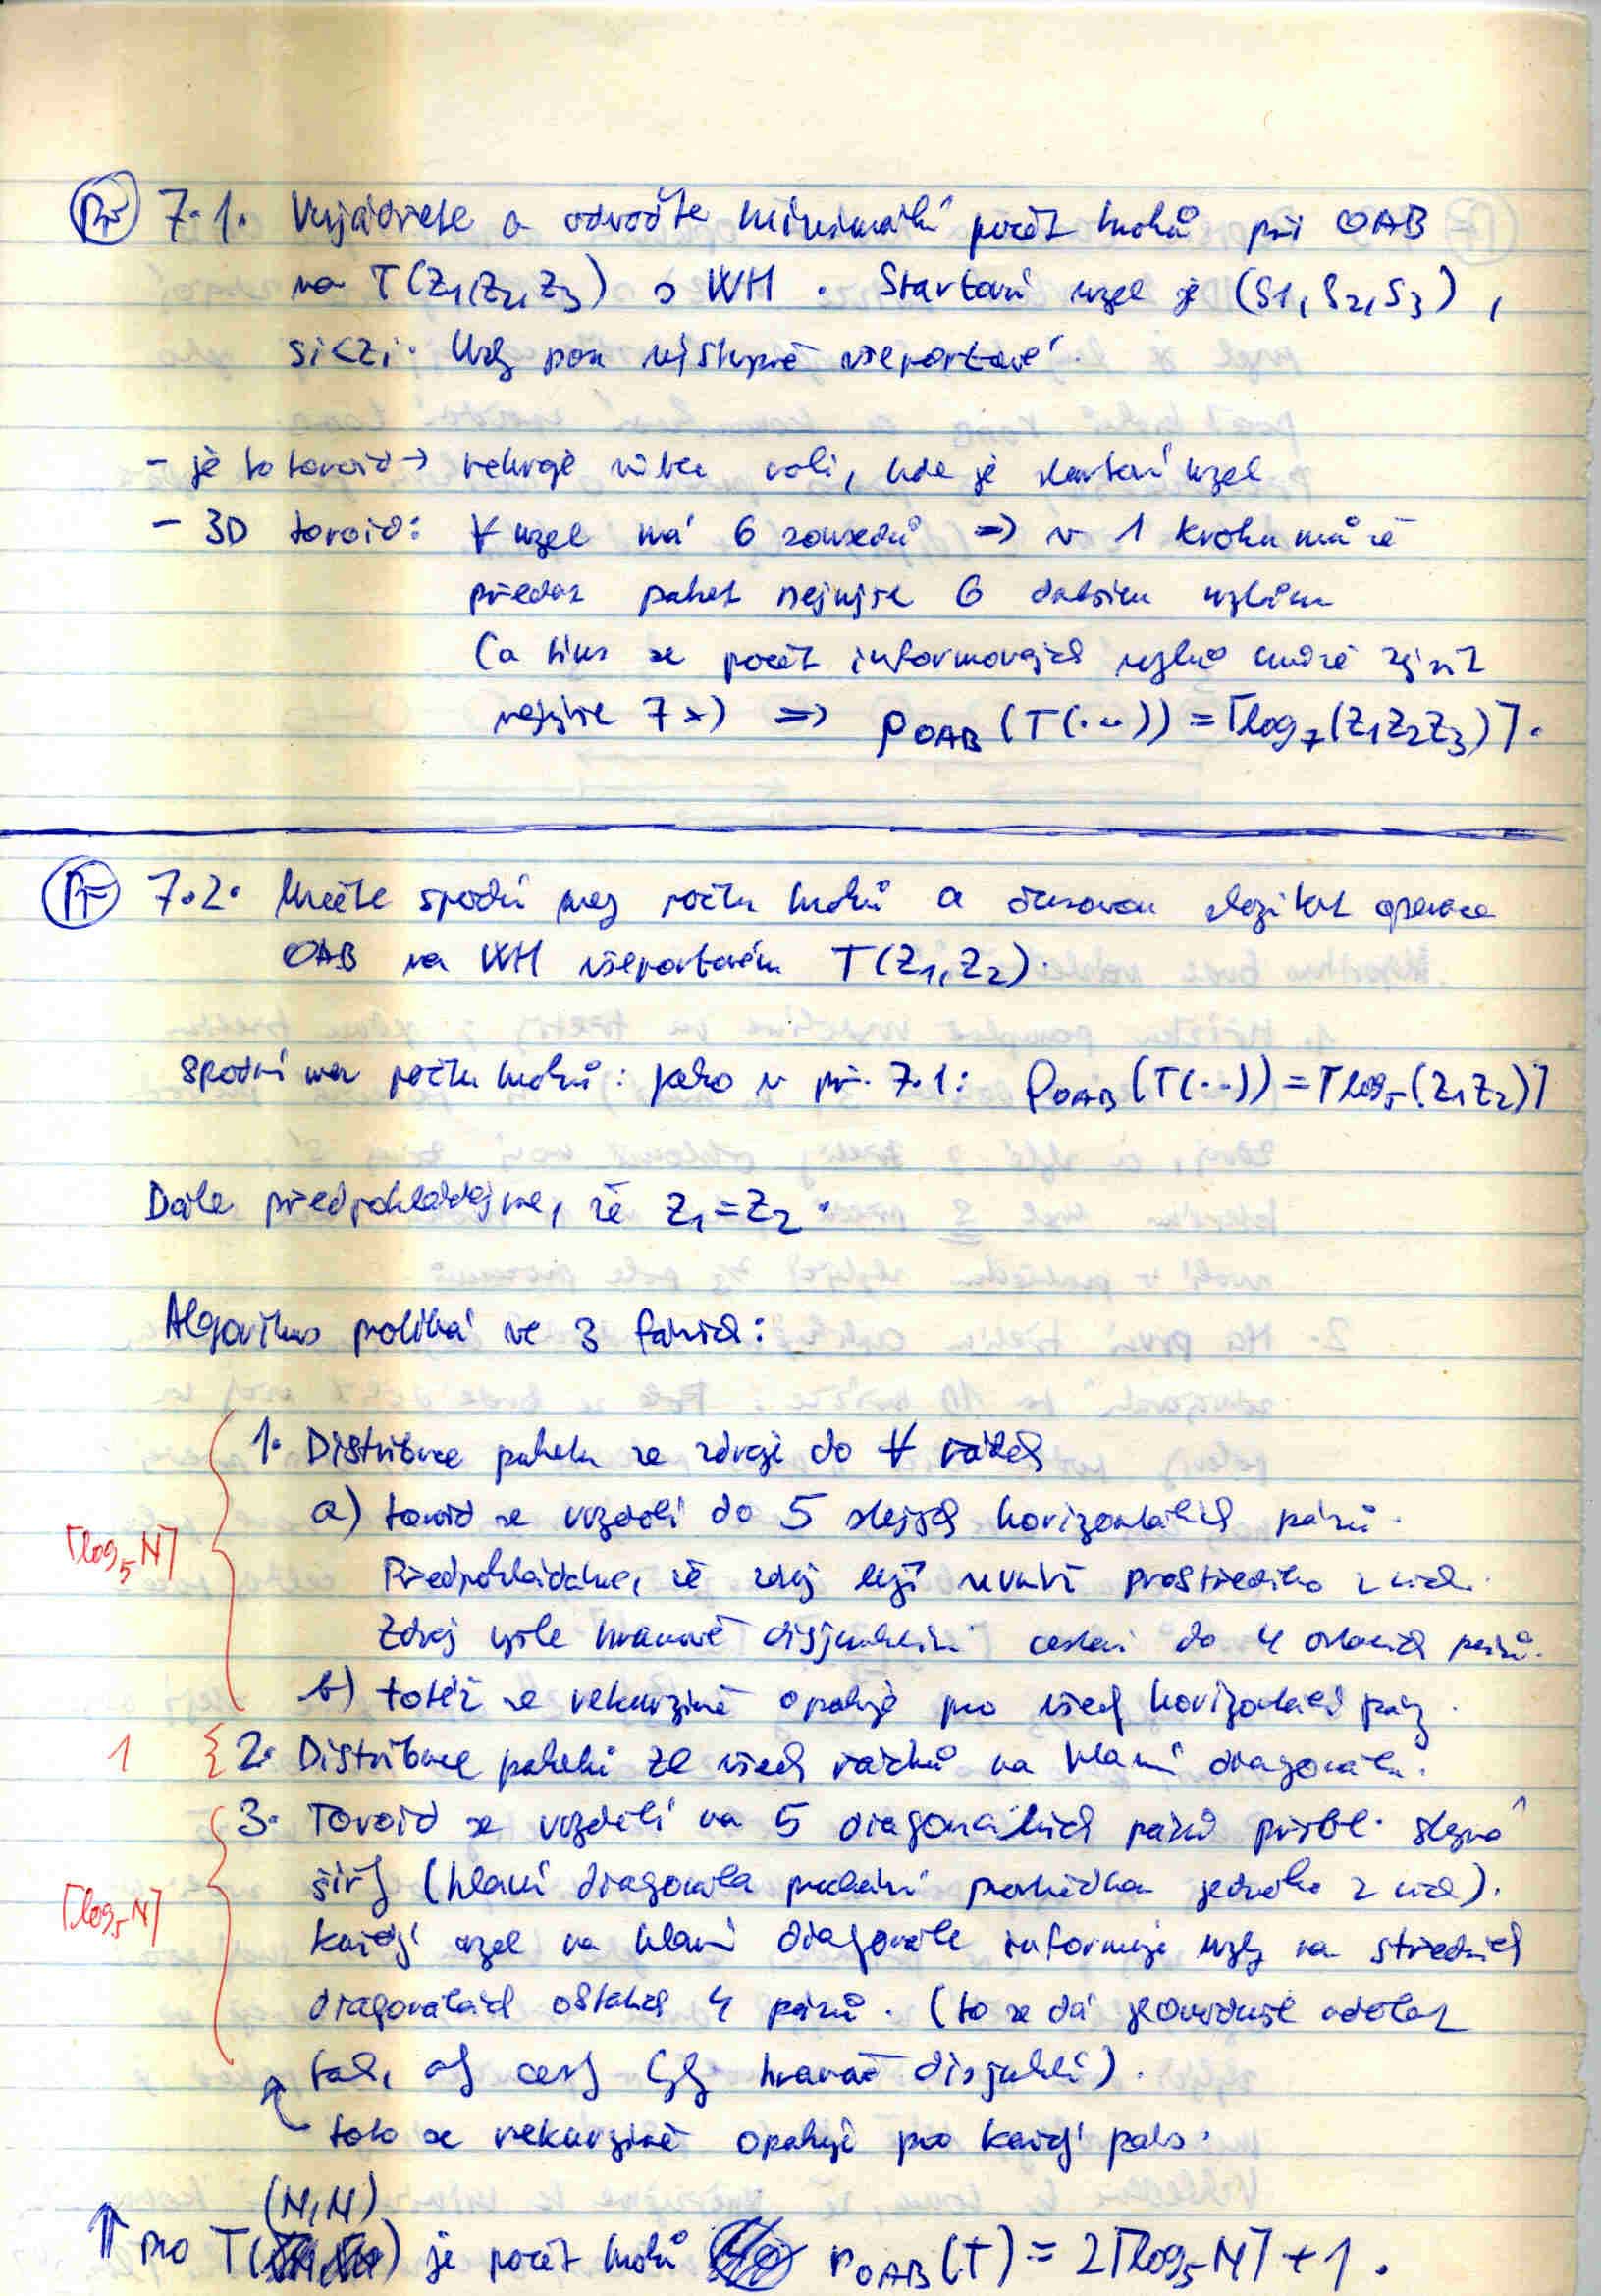 Př 7.1. Vyjádřete a odvoďte minimální počet kroků při OAB
na T(z1,z2,z3) s WH. Startovní uzel je (s1,s2,s3),
si<zi. Uzly jsou výstupně všeportové.
- je to toroid → nehraje vůbec roli, kde je startovní uzel
- 3D toroid: ∀ uzel má 6 sousedů => v 1 kroku může
předat paket nejvýše 6 dalším uzlům
(a tím se počet informovaných uzlů může zvýšit
nejvýše 7x) => ρOAB(T(...)) = ⌈log7(z1z2z3)⌉.
Př 7.2. Určete spodní mez počtu kroků a časovou složitost operace
OAB na WH všeportovém T(z1,z2).
spodní mez počtu kroků: jako v př. 7.1: ρOAB(T(..)) = ⌈log5(z1z2)⌉
Dále předpokládejme, že z1=z2.
Algoritmus probíhá ve 3 fázích:
1. Distribuce paketu ze zdroje do ∀ řádků
a) toroid se rozdělí do 5 stejných horizontálních pásů.
⌈log5N⌉
Předpokládáme, že zdroj leží uvnitř prostředního z nich.
Zdroj vyšle hranově disjunktními cestami do 4 ostatních pásů.
b) totéž se rekurzivně opakuje pro všechny horizontální pásy.
1 2. Distribuce paketů ze všech řádků na hlavní diagonálu.
3. Toroid se rozdělí na 5 diagonálních pásů přibl. stejné
šířky (hlavní diagonála prochází prostředkem jednoho z nich).
⌈log5N⌉
Každý uzel na hlavní diagonále informuje uzly na středních
diagonálách ostatních 4 pásů. (to se dá jednoduše udělat
tak, aby cesty byly hranově disjunktní).
toto se rekurzivně opakuje pro každý pás.
(N,N)
⇑ pro T( ) je počet kroků rOAB(T) = 2⌈log5N⌉+1.